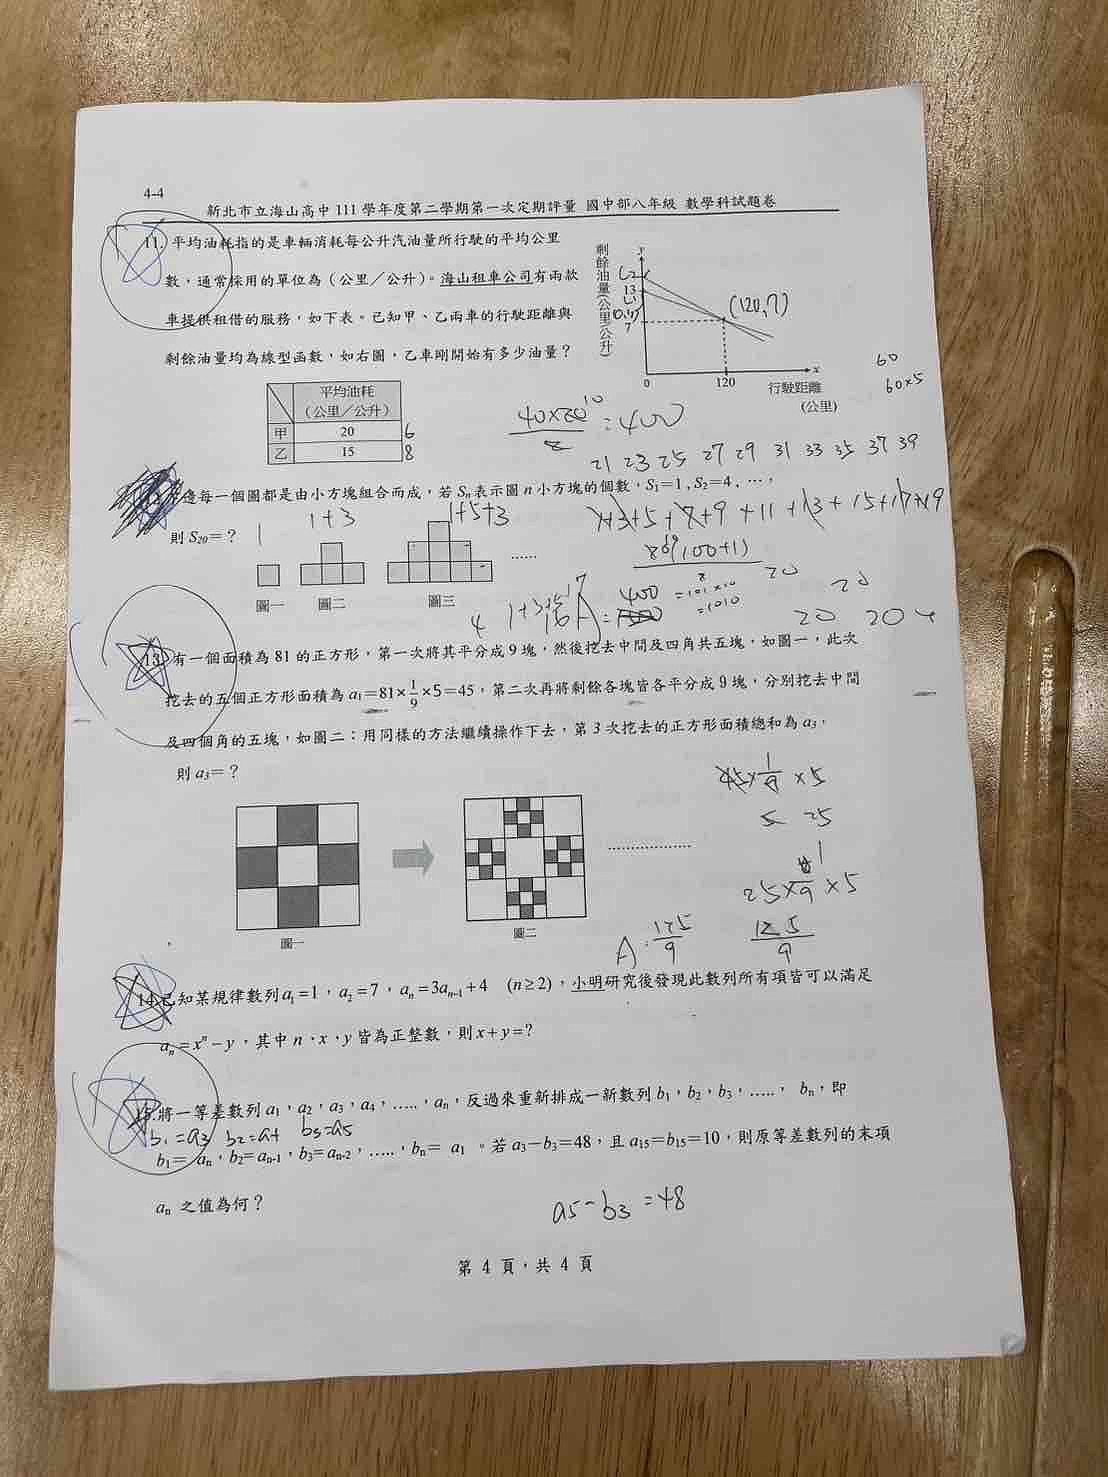 4-4
新北市立海山高中 111 學年度第二學期第一次定期評量 國中部八年級 數學科試題卷
11. 平均油耗指的是車輛消耗每公升汽油量所行駛的平均公里
數,通常採用的單位為(公里/公升)。海山租車公司有兩款
車提供租借的服務,如下表。已知甲、乙兩車的行駛距離與
剩餘油量均為線型函數,如右圖,乙車剛開始有多少油量?
剩餘油量(公里/公升)
y
13
7
(120,7)
0
120
x
行駛距離
(公里)
60
60×5
平均油耗
(公里/公升)
甲 20 6
乙 15 8
=400
21 23 25 27 29 31 33 35 37 39
邊每一個圖都是由小方塊組合而成,若 Sn 表示圖 n 小方塊的個數,S1=1,S2=4,…,
則 S20=?
1
1+3
1+5+3
1+3+5+7+9+11+13+15+17+19
圖一
圖二
圖三
......
400
=1010
20
20
20
13. 有一個面積為 81 的正方形,第一次將其平分成 9 塊,然後挖去中間及四角共五塊,如圖一,此次
挖去的五個正方形面積為 a1=81×1/9×5=45,第二次再將剩餘各塊皆各平分成 9 塊,分別挖去中間
及四個角的五塊,如圖二:用同樣的方法繼續操作下去,第 3 次挖去的正方形面積總和為 a3,
則 a3=?
45×1/9×5
5 25
25×1/9×5
125/9
A:125/9
圖一
圖二
14.已知某規律數列 a1=1,a2=7,an=3an-1+4 (n≥2),小明研究後發現此數列所有項皆可以滿足
an=x^n−y,其中 n、x、y 皆為正整數,則 x+y=?
15.將一等差數列 a1,a2,a3,a4,…..,an,反過來重新排成一新數列 b1,b2,b3,…..,bn,即
b1=a3 b2=a4 b3=a5
b1= an,b2=an-1,b3=an-2,…..,bn= a1 。若 a3−b3=48,且 a15=b15=10,則原等差數列的末項
an 之值為何?
a5-b3=48
第 4 頁,共 4 頁